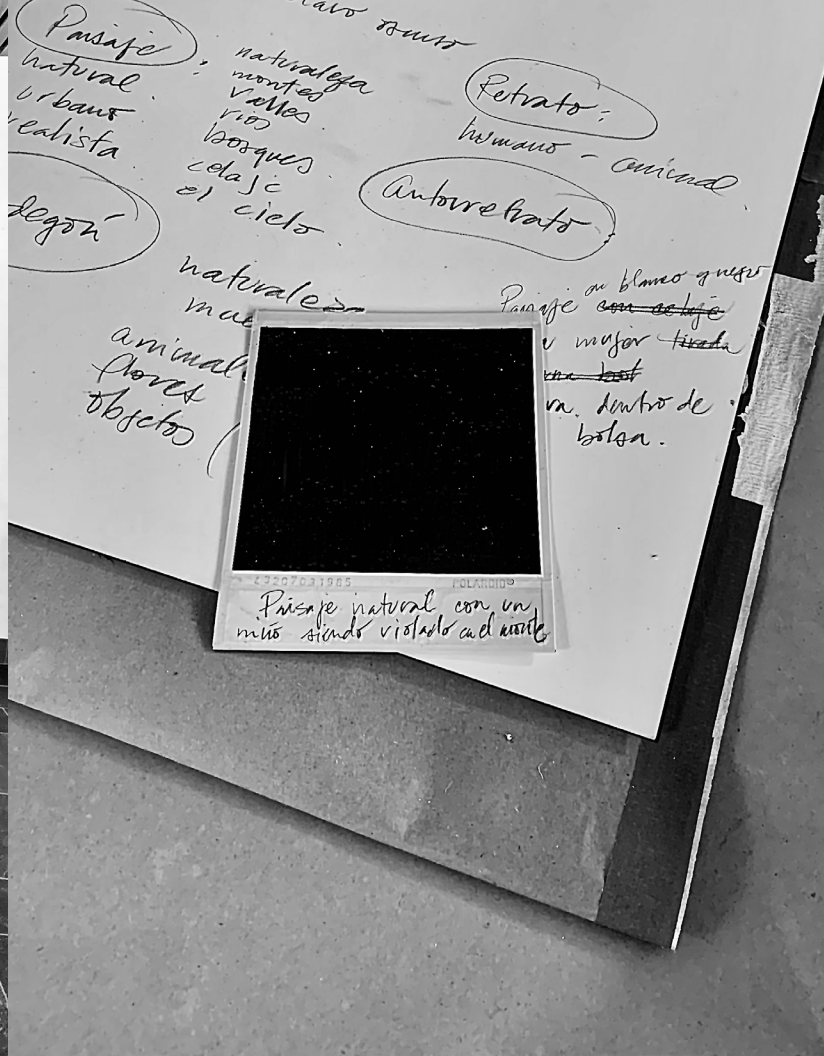 claro oscuro
Paisaje :
natural
urbano
realista
naturaleza
montes
valles
ríos
bosques
celaje
el cielo
Retrato :
humano - animal
Autorretrato :
degón
naturaleza
mue
animal
flores
objetos (
en blanco y negro
Paisaje con celaje
mujer tirada
una
va. dentro de
bolsa.
POLAROID®
Paisaje natural con un
niño siendo violado en el monte